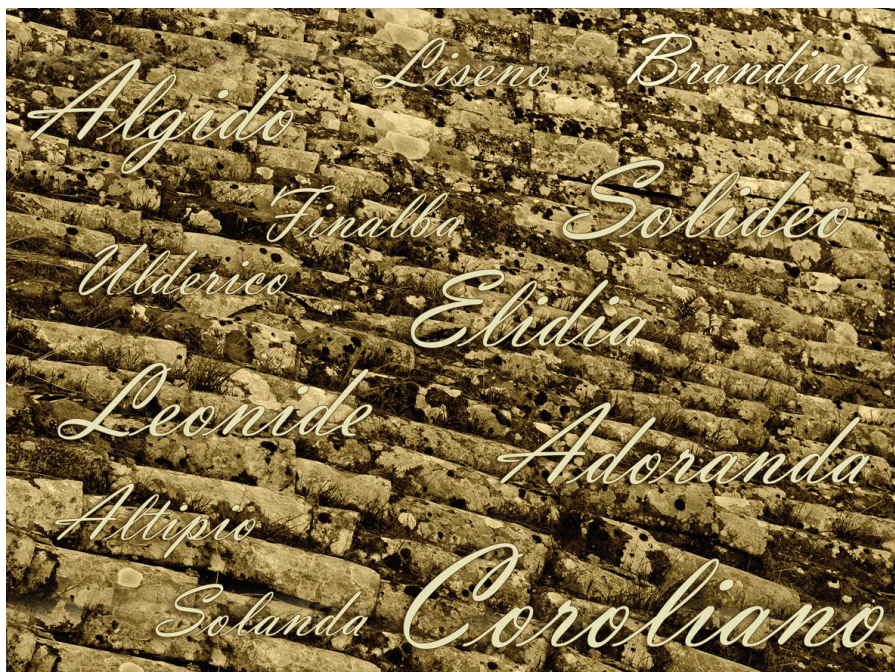 Liseno
Brandina
Algido
Solideo
Finalba
Ulderico
Elidia
Leonide
Adoranda
Altipio
Solanda
Coroliano